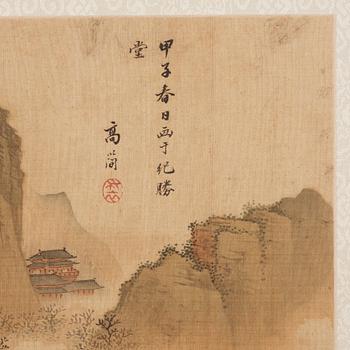 甲子春日画于纪勝
堂
高簡